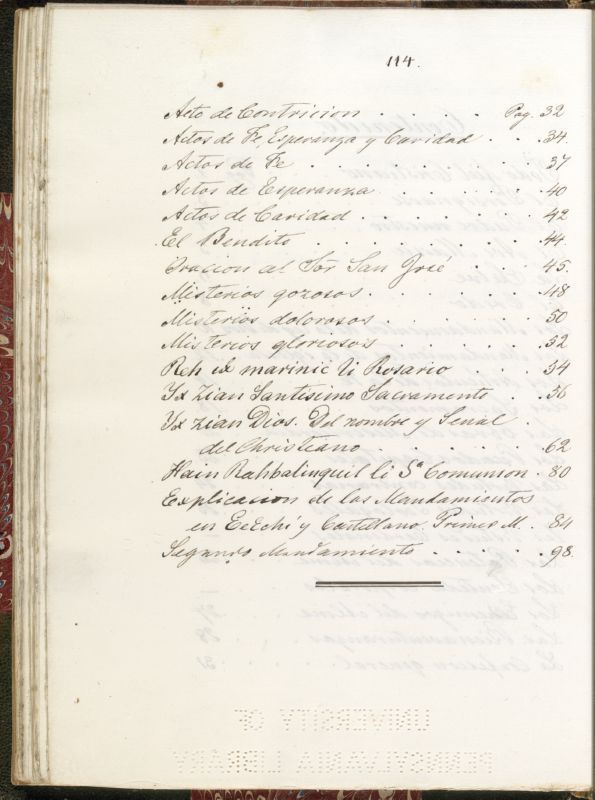 114.
Acto de Contricion . . . . . Pag. 32
Actos de Fe, Esperanza y Caridad . . 34.
Actos de Fe . . . . . . . 37
Actos de Esperanza . . . . . . 40
Actos de Caridad . . . . . . . 42
El Bendito . . . . . . . . 44
Oracion al Sõr San José . . . . 45.
Misterios gozosos . . . . . . 48
Misterios dolorosos . . . . . . 50
Misterios gloriosos . . . . . . 52
Reh ix marinic li Rosario . . . . 54
Yx Zian Santisimo Sacramento . . 56
Yx zian Dios. Del nombre y Señal .
del Christiano . . . . . . 62
Hain Rahbalinquil li Sª Comunion . 80
Explicacion de los Mandamientos
en EcEchí y Castellano. Primer M. . 84
Segundo Mandamiento . . . . . 98.
UNIVERSITY OF
PENNSYLVANIA LIBRARY